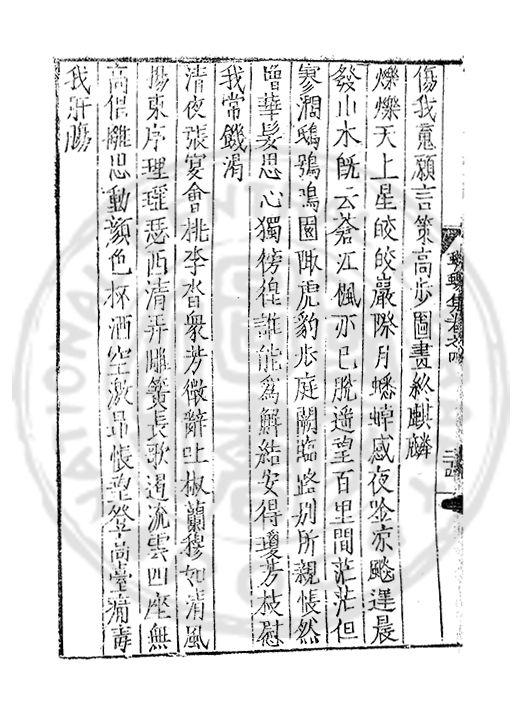 傷我䰟願言策高步圖畫麒麟
爍爍天上星皎皎巖際月蟋蟀感夜吟凉飈逞晨
發山水旣云蒼江楓亦已脫遥望百里間茫茫但
寥濶鴟鴞鳴園陬虎豹步庭闕臨路别所親悵然
增華髮思心獨徬徨誰能爲解結安得瓊芳枝慰
我常饑渴
清夜張宴會桃李沓衆芳微辭吐椒蘭穆如清風
揚東序理瑤瑟西清弄雕簧長歌遏流雲四座無
高倡離思動顏色杯酒空激昻悵望登高臺毒
我肝腸
蠛蠓集卷之四
NATIONAL